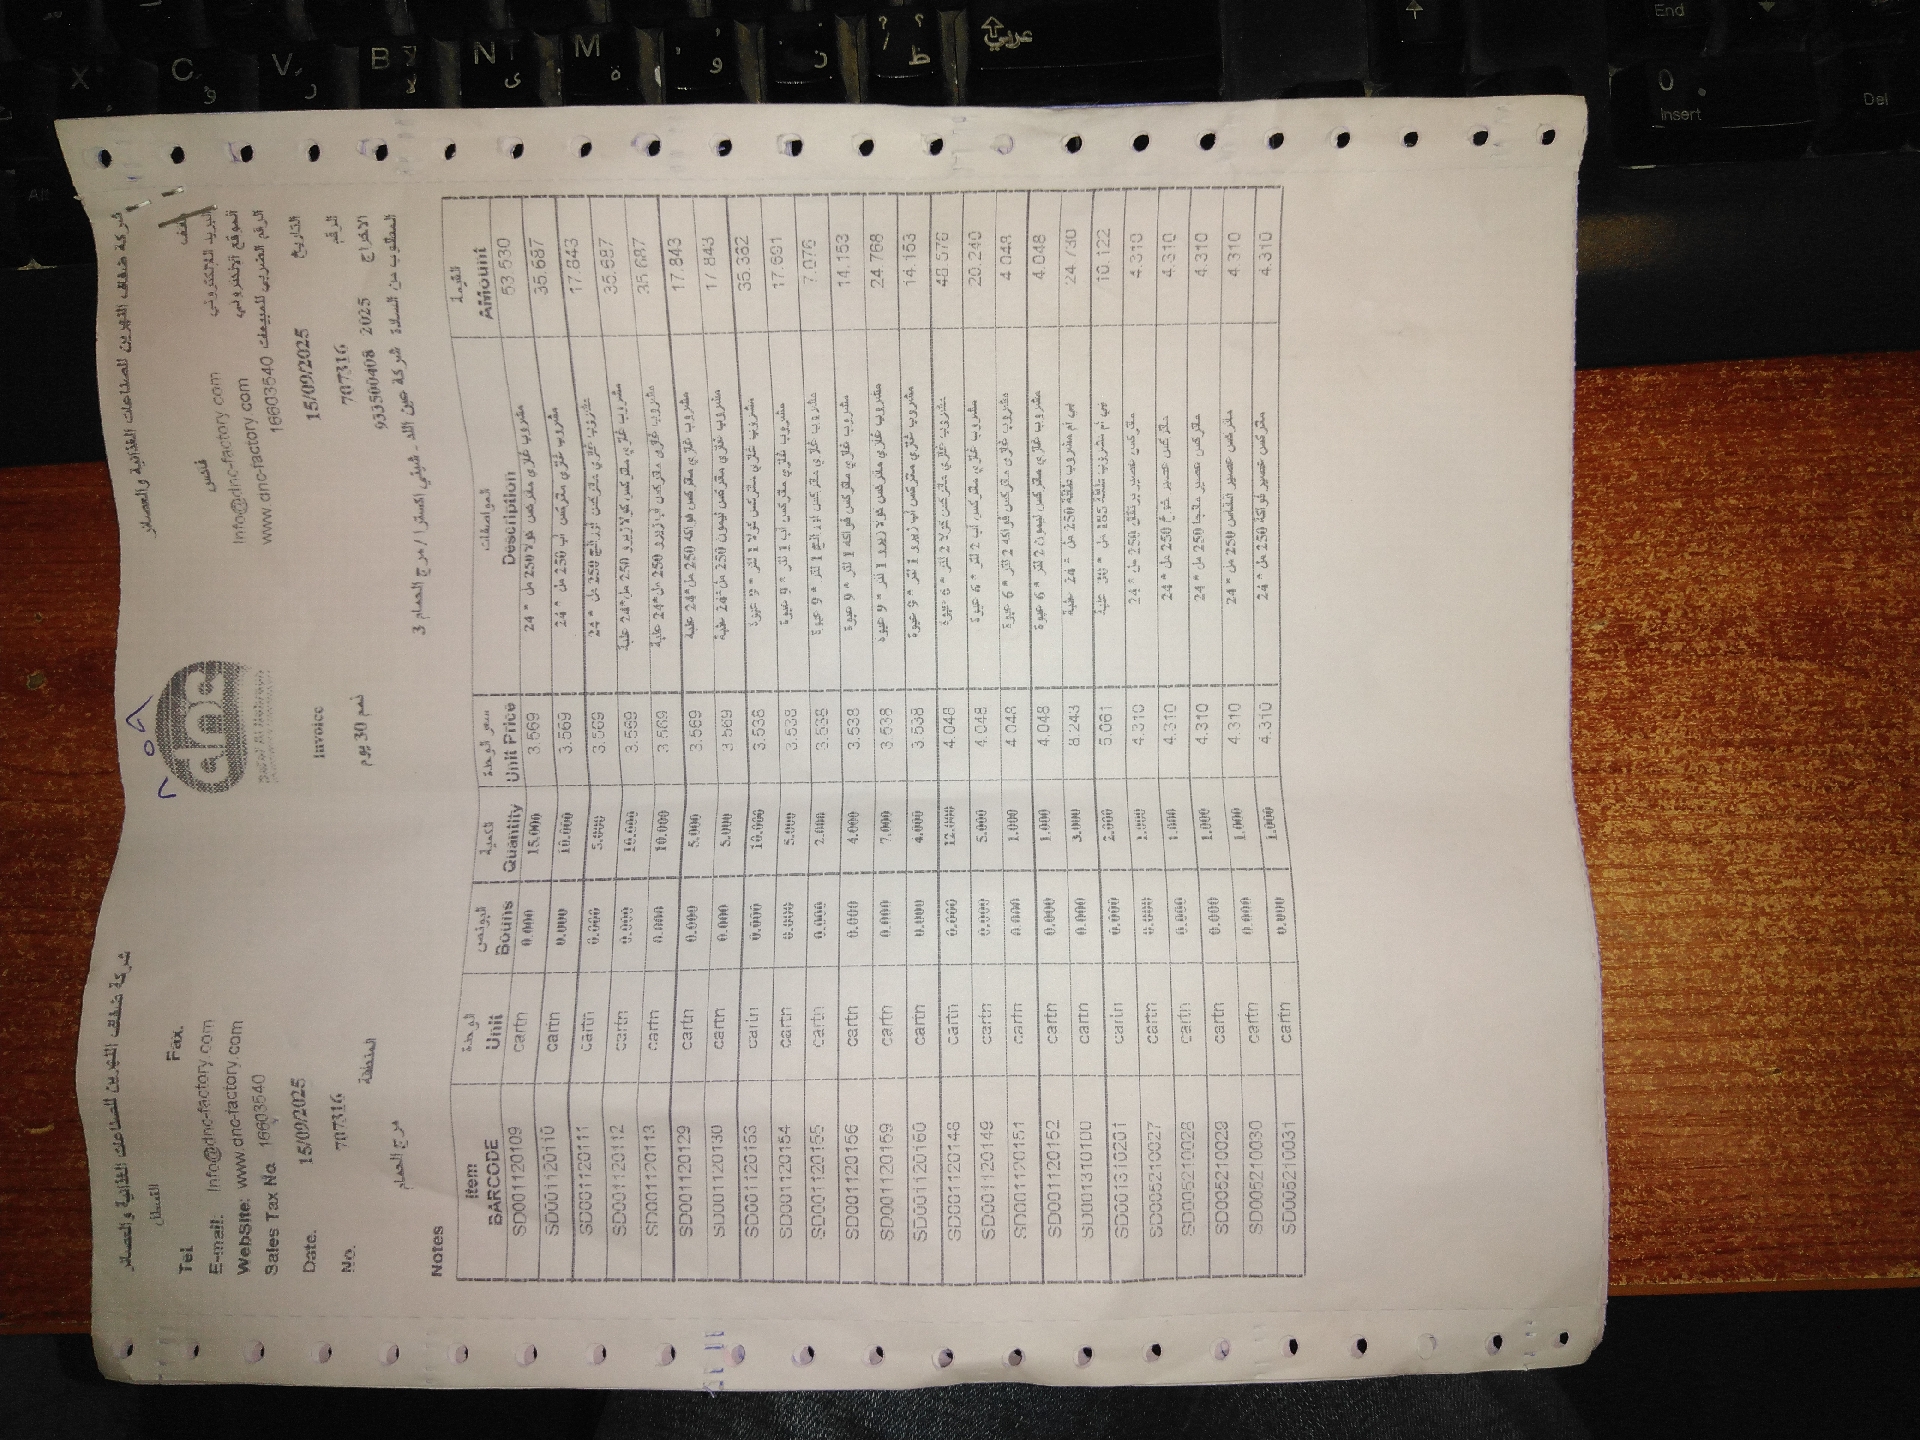 شركة ضفاف النهرين للصناعات الغذائية والعصائر
شركة ضفاف النهرين للصناعات الغذائية والعصائر
dnc
Tel. Fax.
E-mail: Info@dnc-factory.com
Info@dnc-factory.com البريد الالكتروني
WebSite: www.dnc-factory.com
www.dnc-factory.com الموقع الالكتروني
Sales Tax No. 16603540
16603540 الرقم الضريبي للمبيعات
Date. 15/09/2025
Invoice
15/09/2025 التاريخ
No. 707316
707316 الرقم
ذمم 30 يوم
المنطقة
مرج الحمام
93500408 2025
المطلوب من السادة شركة عين الله - شيفي اكسترا / مرج الحمام 3
Notes
Item الوحدة البونص الكمية سعر الوحدة المواصفات القيمة
BARCODE Unit Bouns Quantity Unit Price Description Amount
SD001120109 cartn 0.000 15.000 3.569 مشروب غازي مفركس كولا 250 مل * 24 53.530
SD001120110 cartn 0.000 10.000 3.569 مشروب غازي مفركس اب 250 مل * 24 35.687
SD001120111 cartn 0.000 5.000 3.569 مشروب غازي مفركس اورانج 250 مل * 24 17.843
SD001120112 cartn 0.000 10.000 3.569 مشروب غازي مفركس كولا زيرو 250 مل*24 علبة 35.687
SD001120113 cartn 0.000 10.000 3.569 مشروب غازي مفركس اب زيرو 250 مل*24 علبة 35.687
SD001120129 cartn 0.000 5.000 3.569 مشروب غازي مفركس فواكه 250 مل*24 علبة 17.843
SD001120130 cartn 0.000 5.000 3.569 مشروب غازي مفركس ليمون 250 مل*24 علبة 17.843
SD001120153 cartn 0.000 10.000 3.538 مشروب غازي مفركس كولا 1 لتر * 9 عبوة 35.382
SD001120154 cartn 0.000 5.000 3.538 مشروب غازي مفركس اب 1 لتر * 9 عبوة 17.691
SD001120155 cartn 0.000 2.000 3.538 مشروب غازي مفركس اورانج 1 لتر * 9 عبوة 7.076
SD001120156 cartn 0.000 4.000 3.538 مشروب غازي مفركس فواكه 1 لتر * 9 عبوة 14.153
SD001120159 cartn 0.000 7.000 3.538 مشروب غازي مفركس كولا زيرو 1 لتر * 9 عبوة 24.768
SD001120160 cartn 0.000 4.000 3.538 مشروب غازي مفركس اب زيرو 1 لتر * 9 عبوة 14.153
SD001120148 cartn 0.000 12.000 4.048 مشروب غازي مفركس كولا 2 لتر * 6 عبوة 48.576
SD001120149 cartn 0.000 5.000 4.048 مشروب غازي مفركس اب 2 لتر * 6 عبوة 20.240
SD001120151 cartn 0.000 1.000 4.048 مشروب غازي مفركس فواكه 2 لتر * 6 عبوة 4.048
SD001120152 cartn 0.000 1.000 4.048 مشروب غازي مفركس ليمون 2 لتر * 6 عبوة 4.048
SD001310100 cartn 0.000 3.000 8.243 بي ام مشروب طاقة 250 مل * 24 علبة 24.730
SD001310201 cartn 0.000 2.000 5.061 بي ام مشروب طاقة مل * علبة 10.122
SD005210027 cartn 0.000 1.000 4.310 مفركس عصير برتقال 250 مل * 24 4.310
SD005210028 cartn 0.000 1.000 4.310 مفركس عصير خوخ 250 مل * 24 4.310
SD005210029 cartn 0.000 1.000 4.310 مفركس عصير مانجا 250 مل * 24 4.310
SD005210030 cartn 0.000 1.000 4.310 مفركس عصير اناناس 250 مل * 24 4.310
SD005210031 cartn 0.000 1.000 4.310 مفركس عصير فواكه 250 مل * 24 4.310
X C V B N M
عربي
End
0
Insert
Del